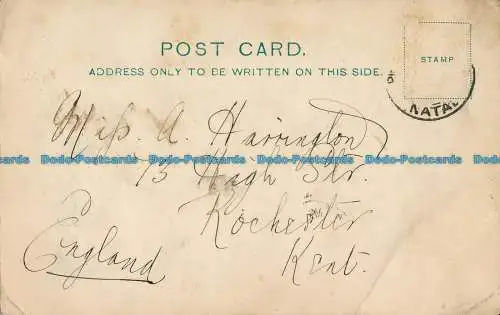 POST CARD.
ADDRESS ONLY TO BE WRITTEN ON THIS SIDE.
STAMP
NATAL
Miss A. Harrington
Dodo-Postcards Dodo-Postcards Dodo-Postcards Dodo-Postcards Dodo-Postcards
13 High Str.
Rochester
Kent.
England